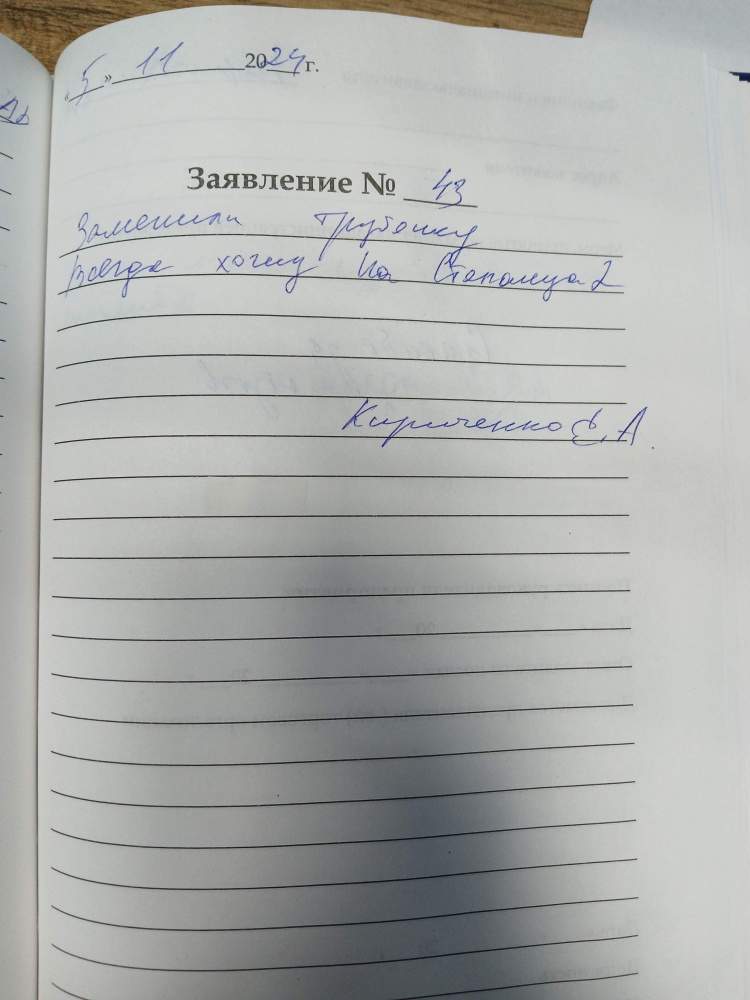 «5» 11 2024 г.
Заявление № 43
Заменили трубочку
Всегда хочу на
Кириченко Е. А.